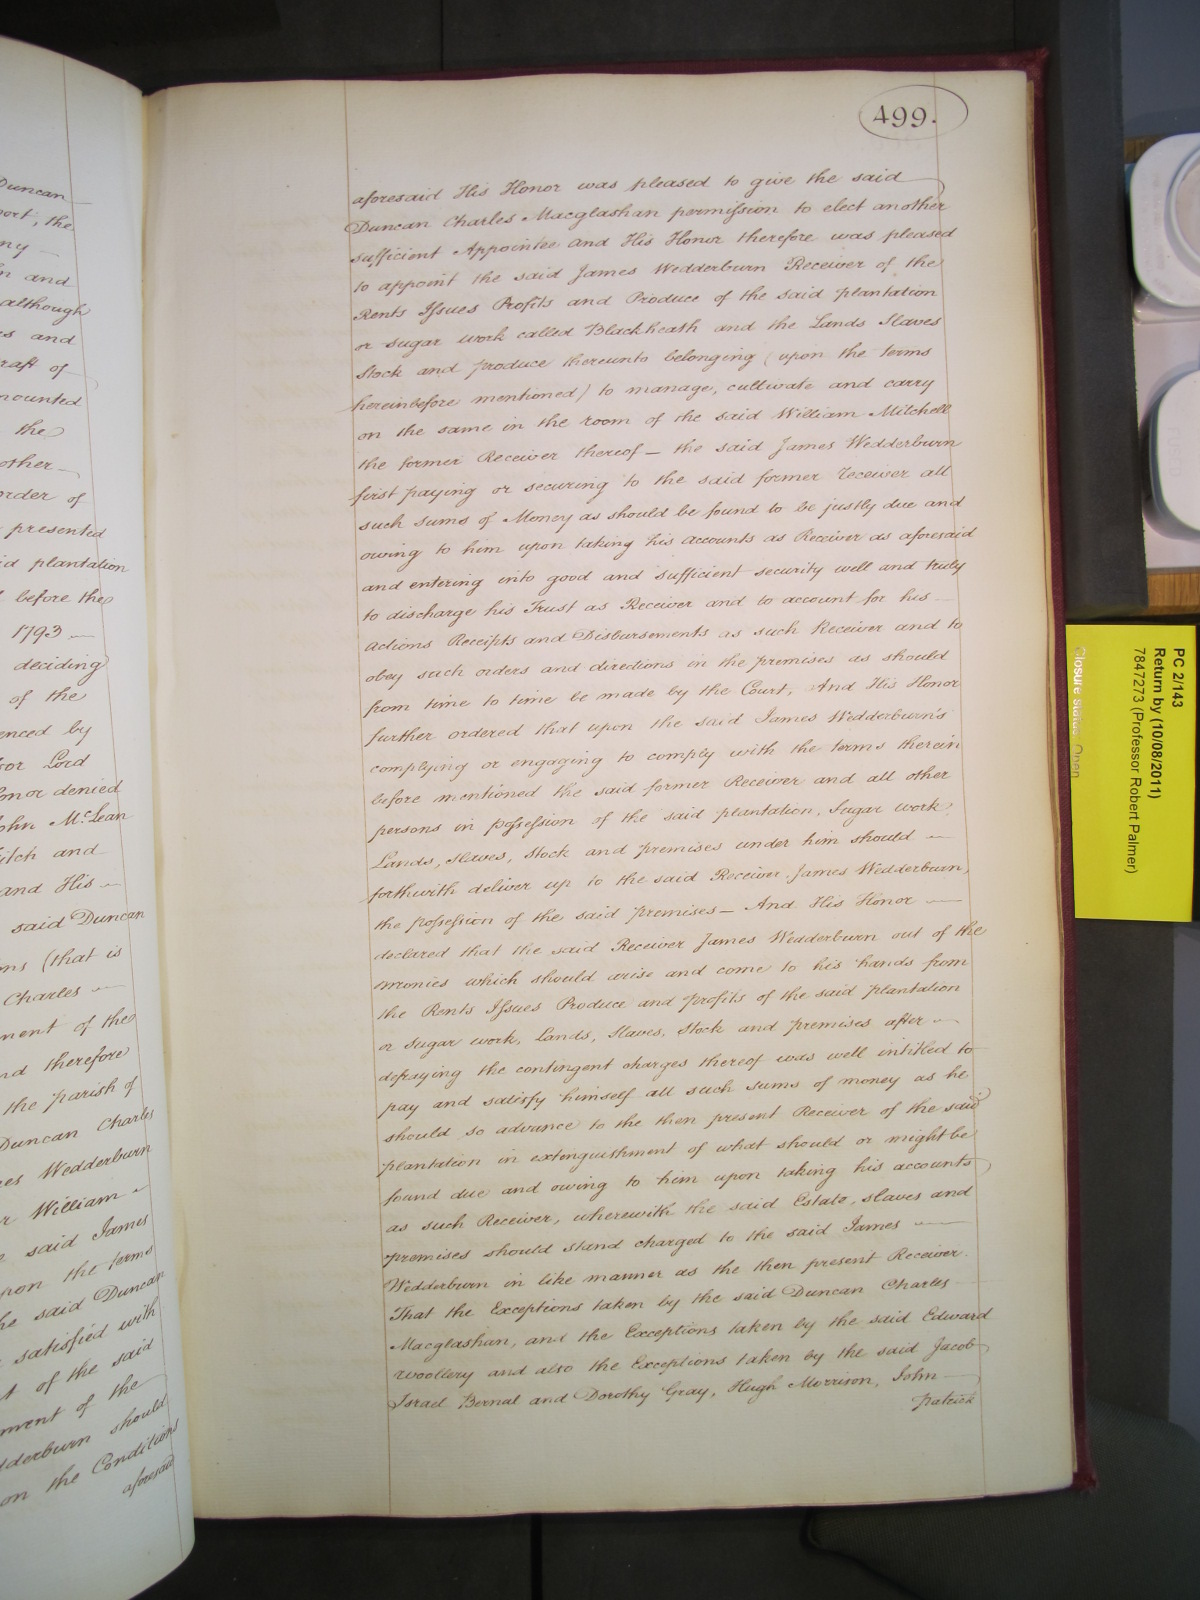 499.
aforesaid His Honor was pleased to give the said
Duncan Charles Macglashan permission to elect another
sufficient Appointee and His Honor therefore was pleased
to appoint the said James Wedderburn Receiver of the
Rents Issues Profits and Produce of the said plantation
or sugar work called Blackheath and the Lands Slaves
Stock and produce thereunto belonging (upon the terms
hereinbefore mentioned) to manage, cultivate and carry
on the same in the room of the said William Mitchell
the former Receiver thereof — the said James Wedderburn
first paying or securing to the said former Receiver all
such sums of Money as should be found to be justly due and
owing to him upon taking his accounts as Receiver as aforesaid
and entering into good and sufficient security well and truly
to discharge his Trust as Receiver and to account for his —
actions Receipts and Disbursements as such Receiver and to
obey such orders and directions in the premises as should
from time to time be made by the Court, And His Honor
further ordered that upon the said James Wedderburn's
complying or engaging to comply with the terms therein
before mentioned the said former Receiver and all other
persons in possession of the said plantation, Sugar work
Lands, Slaves, Stock and premises under him should —
forthwith deliver up to the said Receiver James Wedderburn,
the possession of the said premises — And His Honor —
declared that the said Receiver James Wedderburn out of the
monies which should arise and come to his hands from
the Rents Issues Produce and profits of the said plantation
or sugar work, Lands, Slaves, Stock and premises after —
defraying the contingent charges thereof was well intitled to
pay and satisfy himself all such sums of money as he
should so advance to the then present Receiver of the said
plantation in extinguishment of what should or might be
found due and owing to him upon taking his accounts
as such Receiver, wherewith the said Estate, slaves and
premises should stand charged to the said James —
Wedderburn in like manner as the then present Receiver.
That the Exceptions taken by the said Duncan Charles
Macglashan, and the Exceptions taken by the said Edward
Woollery and also the Exceptions taken by the said Jacob
Israel Bernal and Dorothy Gray, Hugh Morrison, John —
Patrick
Duncan
the
and
although
and
of
the
order of
presented
plantation
before the
1793 —
deciding
of the
by
Lord
denied
John McLean
and
and His —
said Duncan
(that is
Charles —
of the
therefore
the parish of
Duncan Charles
Wedderburn
William —
said James
upon the terms
said Duncan
satisfied with
of the said
of the
should
on the Conditions
aforesaid
PC 2/143
Return by (10/08/2011)
7847273 (Professor Robert Palmer)
Closure status Open